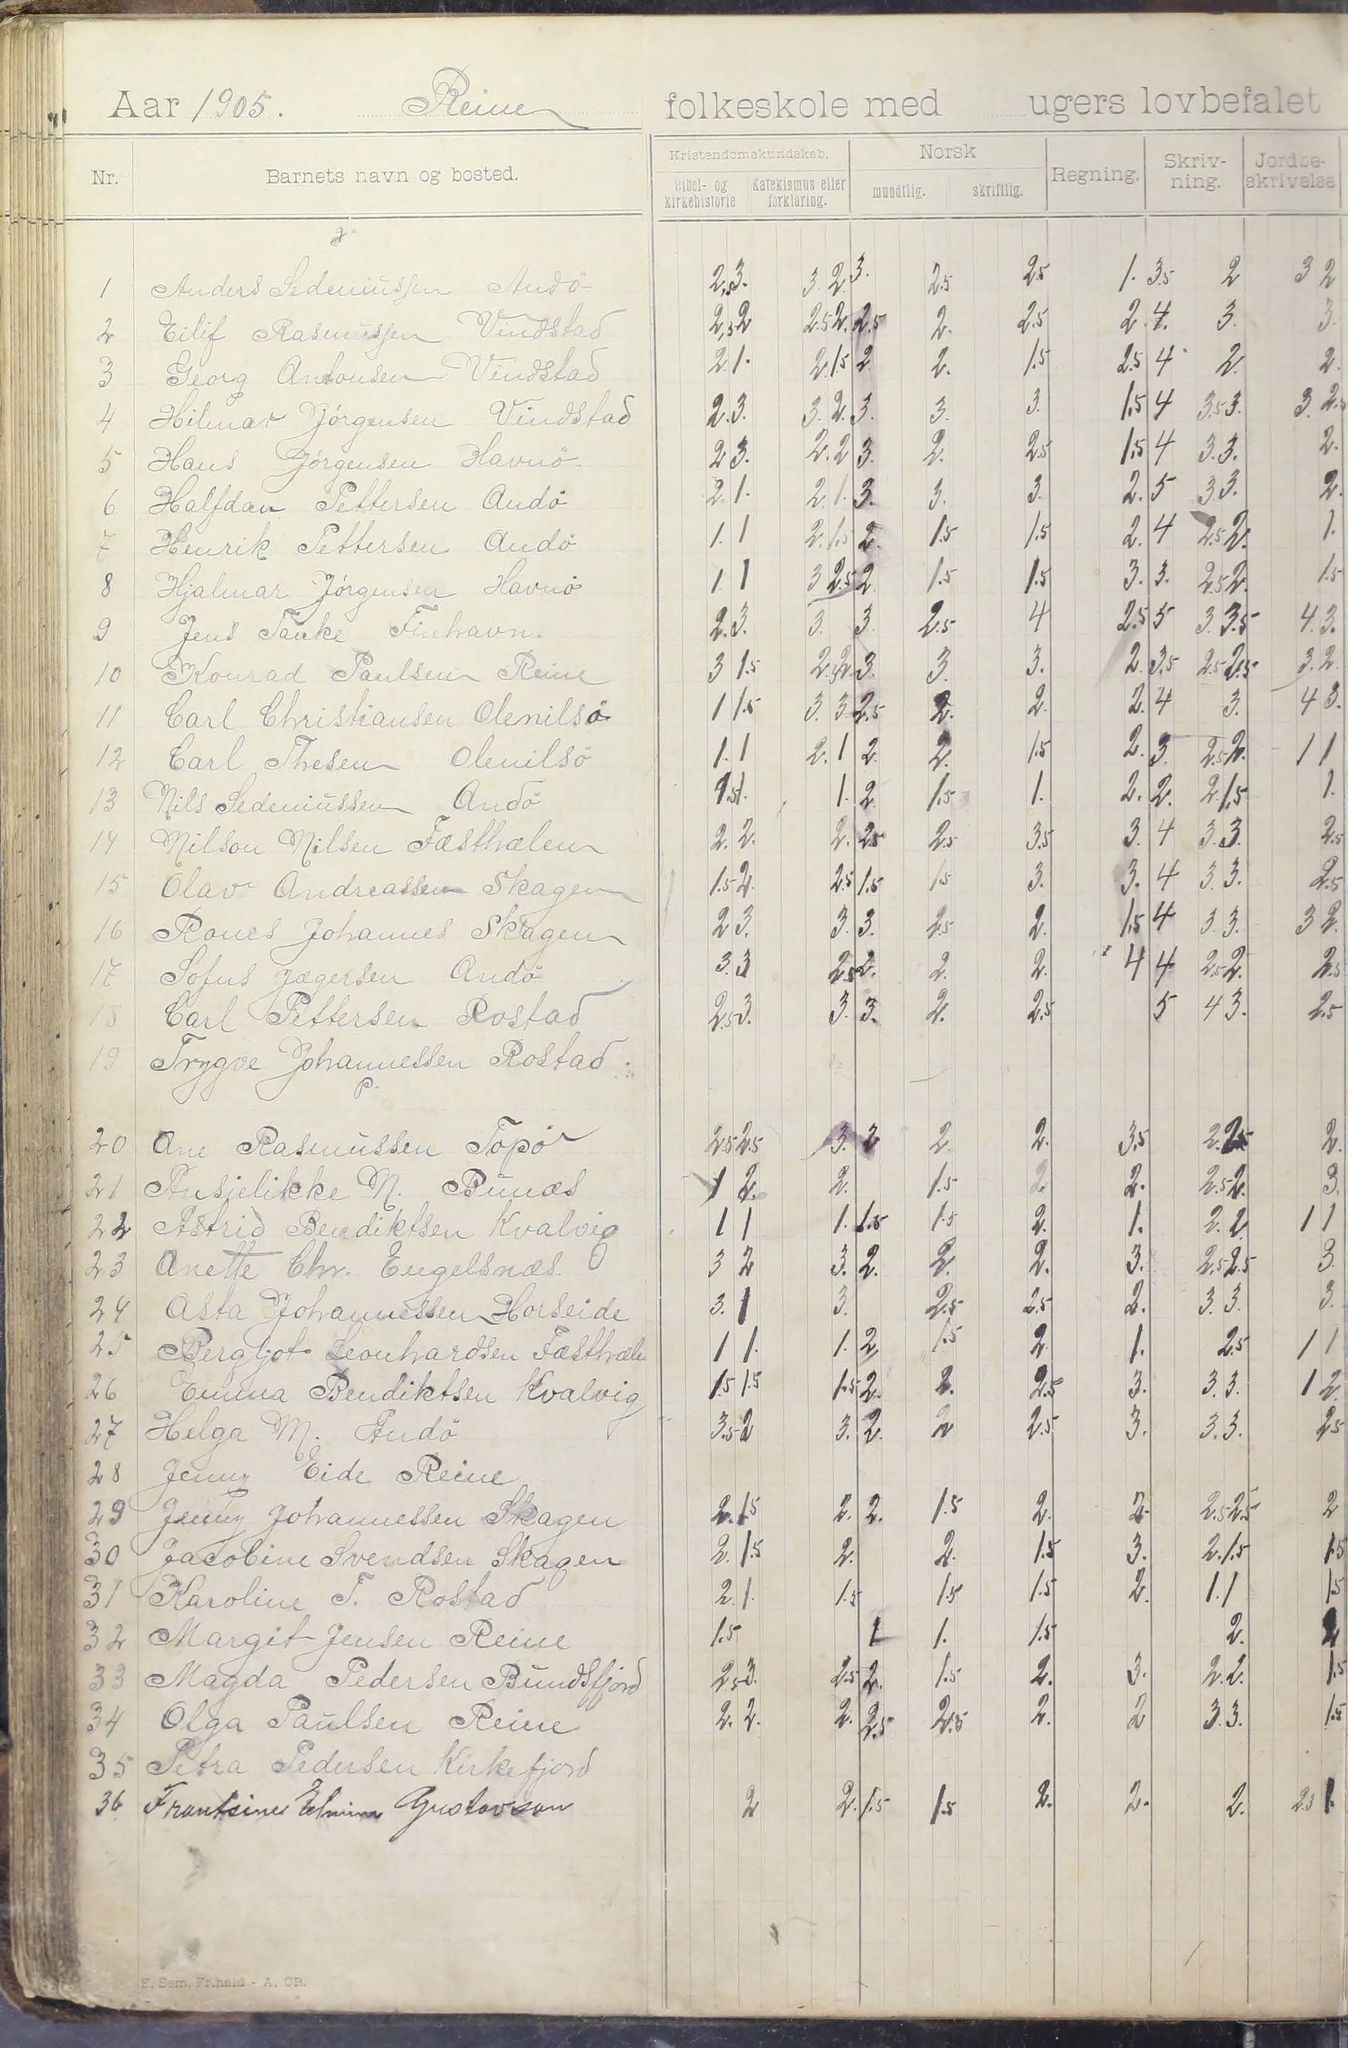 Aar 1905. Reine folkeskole med ugers lovbefalet
Nr. Barnets navn og bosted. Kristendomskundskab. Norsk Regning. Skriv-ning. Jordbe-skrivelse
Bibel- og kirkehistorie Katekismus eller forklaring. mundtlig. skriftlig.
g.
1 Anders Sedeniussen Andö 2,5 3. 3. 2 3. 2.5 2.5 1. 3.5 2 3 2
2 Eilif Rasmussen Vindstad 2,5 2 2.5 2. 2.5 2. 2.5 2. 4. 3. 3.
3 Georg Antonsen Vindstad 2. 1. 2. 1.5 2. 2. 1.5 2.5 4 2. 2.
4 Hilmar Jörgensen Vindstad 2. 3. 3. 2. 3. 3. 3. 1.5 4 3.5 3. 3. 2.5
5 Hans Jörgensen Havnö. 2 3. 2. 2 3. 2. 2.5 1.5 4 3. 3. 2.
6 Halfdan Pettersen Andö 2. 1. 2. 1. 3. 3. 3. 2. 5 3 3. 2.
7 Henrik Pettersen Andö 1. 1 2. 1.5 2. 1.5 1.5 2. 4 2.5 2. 1.
8 Hjalmar Jörgensen Havnö 1 1 3 2.5 2 1.5 1.5 3. 3. 2.5 2. 1.5
9 Jens Tanke Finhavn. 2. 3. 3. 3. 2.5 4 2.5 5 3. 3.5 4. 3.
10 Konrad Paulsen Reine 3 1.5 2.5 2. 3. 3. 3. 2. 3.5 2.5 2.5 3. 2.
11 Carl Christiansen Olenilsö 1 1.5 3. 3. 2.5 2. 2. 2. 4 3. 4 3.
12 Carl Thesen Olenilsö 1. 1 2. 1 2. 2. 1.5 2. 3. 2.5 2. 1 1
13 Nils Sedeniussen Andö 1.5 1. 1. 2. 1.5 1. 2. 2. 2. 1.5 1.
14 Nilson Nilsen Fæsthælen 2. 2. 2. 2.5 2.5 3.5 3. 4 3. 3. 2.5
15 Olav Andreassen Skagen 1.5 2. 2.5 1.5 1.5 3. 3. 4 3. 3. 2.5
16 Rones Johannes Skagen 2 3. 3. 3. 2.5 2. 1.5 4 3. 3. 3 2.
17 Sofus Jægersen Andö 3. 3 2.5 2. 2. 2. 4 4 2.5 2. 2.5
18 Carl Pettersen Rostad 2.5 3. 3. 3. 2. 2.5 5 4 3. 2.5
19 Trygve Johannessen Rostad
p.
20 Ane Rasmussen Topör 2.5 2.5 3. 2 2. 2. 3.5 2. 2.5 2.
21 Ansjelikke N. Bunæs 1 2. 2. 1.5 2. 2. 2.5 2. 3.
22 Astrid Bendiktsen Kvalvig 1 1 1. 1.5 1.5 2. 1. 2. 2. 1 1
23 Anette Chr. Engelsnæs. 3 2 3. 2. 2. 2. 3. 2.5 2.5 3.
24 Asta Johannessen Horseide 3. 1 3. 2.5 2.5 2. 3. 3. 3.
25 Bergljot Leonhardsen Fæsthæle 1 1. 1. 2. 1.5 2. 1. 2.5 1 1
26 Emma Bendiktsen Kvalvig 1.5 1.5 1.5 2. 2. 2.5 3. 3. 3. 1 2.
27 Helga M. Andö 3.5 2 3. 2. 2 2.5 3. 3. 3. 2.5
28 Jenny Eide Reine
29 Jenny Johannessen Skagen 2. 1.5 2. 2. 1.5 2. 2. 2.5 2.5 2
30 Jacobine Svendsen Skagen 2. 1.5 2. 2. 1.5 3. 2. 1.5 1.5
31 Karoline T. Rostad 2. 1. 1.5 1.5 1.5 2. 1. 1 1.5
32 Margit Jensen Reine 1.5 1 1. 1.5 2. 2
33 Magda Pedersen Bundsfjord 2.5 3. 2.5 2. 1.5 2. 3. 2. 2. 1.5
34 Olga Paulsen Reine 2. 2. 2. 2.5 2.5 2. 2 3 3. 1.5
35 Petra Pedersen Kirkefjord
36 Frantsines Gustavson 2 2. 1.5 1.5 2. 2. 2. 2.5 1.
E. Sem, Fr.hald - A. CB.